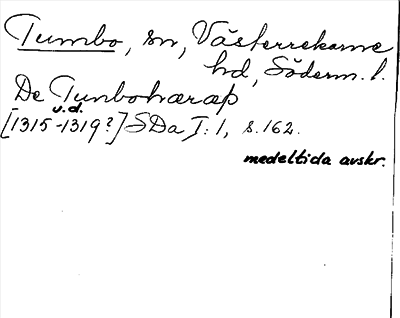 Tumbo, sn, Västerrekarne
hd, Söderm. l.
De Tunbohæræp
u.d.
[1315-1319?] SDa I:1, s. 162.
medeltida avskr.